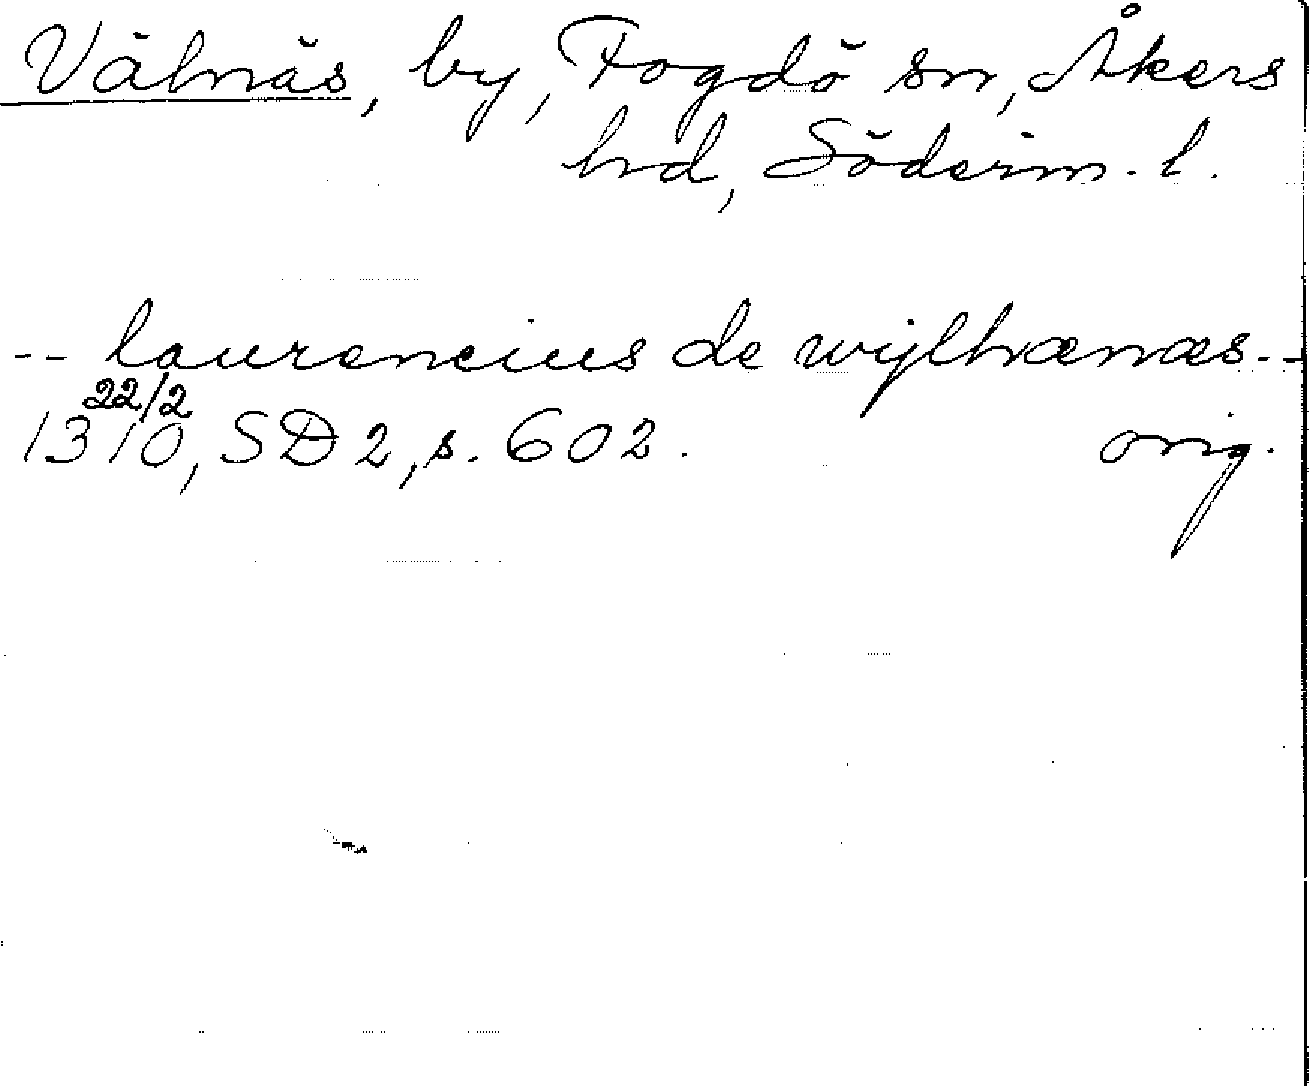 Välnäs, by, Fogdö sn, Åkers
hd, Söderm. l.
-- laurencius de wylhænæs. --
22/2
1310, SD 2, s. 602. orig.